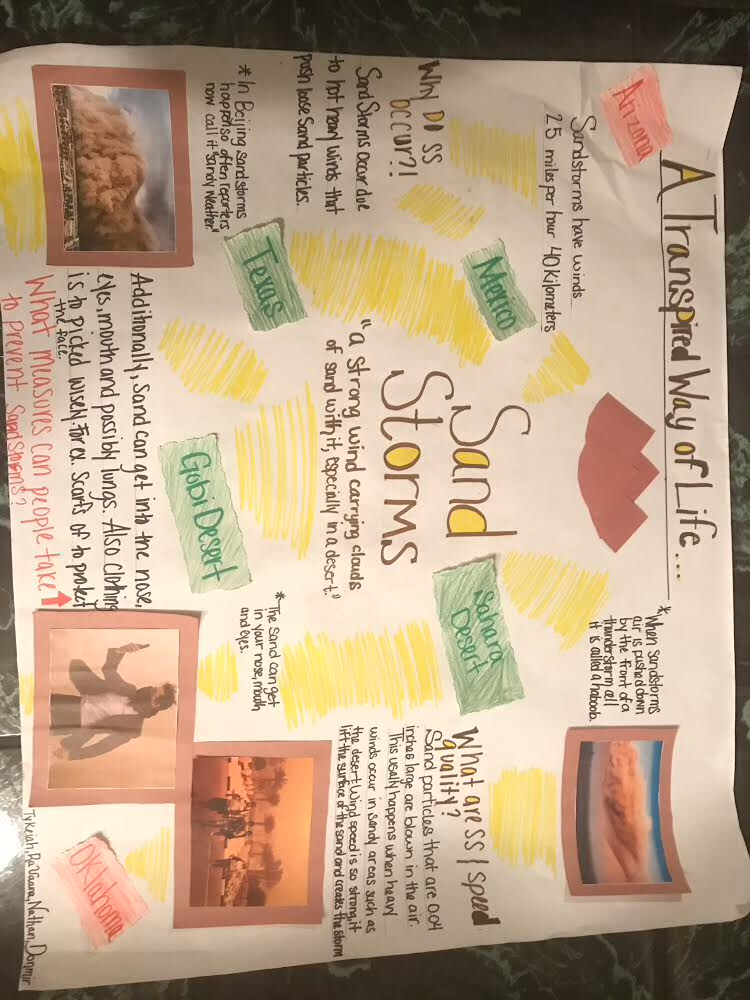 A Transpired Way of Life...
Arizona
Sandstorms have winds
25 miles per hour 40 Kilometers
Why Do SS
occur?!
Sand Storms occur due
to hot heavy winds that
push loose Sand particles.
* In Beijing sandstorms
happen so often reporters
now call it "sandy weather."
Mexico
Texas
Sand
Storms
"a strong wind carrying clouds
of sand with it, especially in a desert."
Gobi Desert
Sahara
Desert
* When sandstorms
air is pushed down
by the front of a
thunderstorm all
it is called a haboob.
* The sand can get
in your nose, mouth
and eyes.
What are SS / speed
quality?
Sand particles that are 0.04
inches large are blown in the air.
This usually happens when heavy
winds occur in sandy areas such as
the desert. Wind speed is so strong, it
lift the surface of the sand and creates the storm
Additionally, Sand can get into the nose,
eyes, mouth and possibly lungs. Also clothing
is to picked wisely. For ex. Scarfs of to protect
the face.
What measures can people take
to prevent Sandstorms?
Oklahoma
Nathan, Donmir